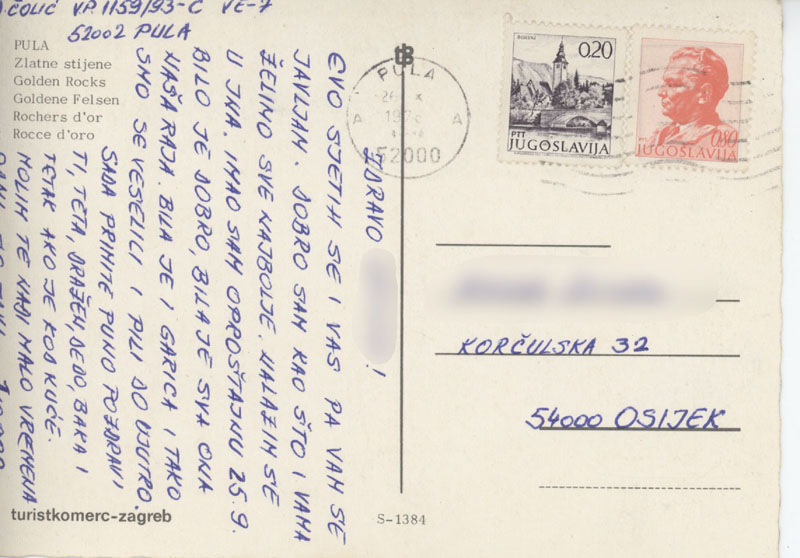 ČOLIĆ V.P. 1159/93-C VE-7
52002 PULA
PULA
Zlatne stijene
Golden Rocks
Goldene Felsen
Rochers d'or
Rocce d'oro
ZDRAVO !
EVO SJETIH SE I VAS PA VAM SE
JAVLJAM. DOBRO SAM KAO ŠTO I VAMA
ŽELIMO SVE NAJBOLJE. NALAZIM SE
U JNA. IMAO SAM OPROŠTAJNU 25.9.
BILO JE DOBRO, BILA JE SVA ONA
NAŠA RAJA. BILA JE I GARICA I TAKO
SMO SE VESELILI I PILI DO UJUTRO.
SADA PRIMITE PUNO POZDRAVI
TI, TETA, DRAŽEN, DEDO, BAKA I
TETAK AKO JE KOD KUĆE.
MOLIM TE NAĐI MALO VREMENA
turistkomerc-zagreb
S-1384
tB
PULA
A A
52000
BOHINJ
0.20
PTT
JUGOSLAVIJA
0.80
JUGOSLAVIJA
KORČULSKA 32
54000 OSIJEK